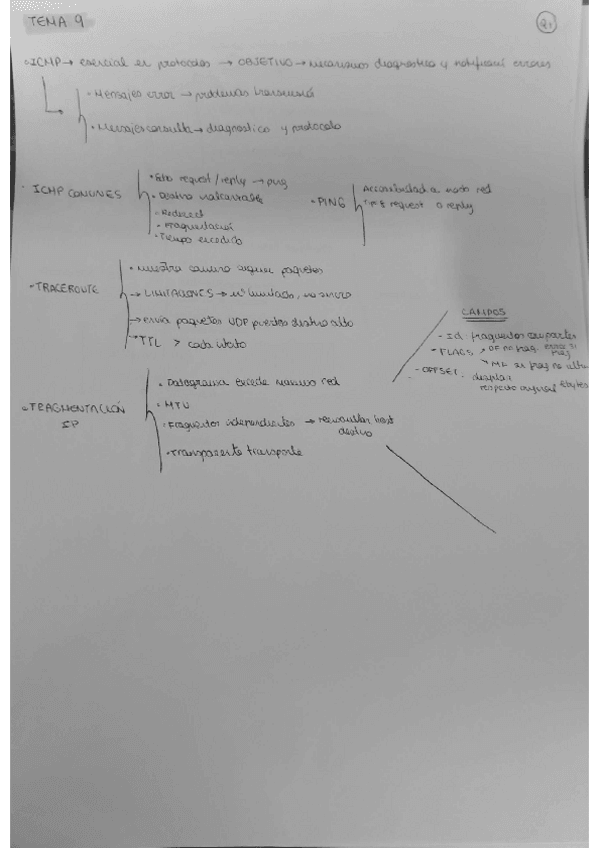 TEMA 9
ICMP → esencial en protocolos → OBJETIVO → mecanismos diagnostico y notificaní errores
• Mensajes error → problemas transmisió
• Mensajes consulta → diagnostico y protocolo
• ICMP COMUNES
• Echo request/reply → ping
• Destino inalcanzable
• Redirect
• Fragmentación
• Tiempo excedido
• PING
Accesibilidad a nodo red
request o reply
• TRACEROUTE
• muestra camino siguen paquetes
→ LIMITACIONES → nº limitado,
→ envia paquetes UDP puertos destino alto
• TTL > cada
CAMPOS
- Id fragmentos comparten
- FLAGS → DF no frag. error si frag
→ MF si frag no ultimo
- OFFSET: desplaz. respecto original 8bytes
• FRAGMENTACIÓN IP
• Datagrama excede maximo red
• MTU
• Fragmentos independientes → reensamblar host destino
• Transparente transporte